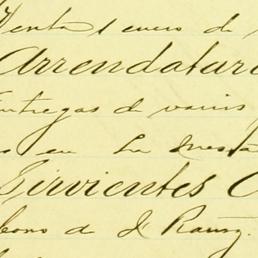 Venta 1 enero de
Arrendatari
Entregas de varios
en la mesa
Sirvientes
abono de J. Ramz.